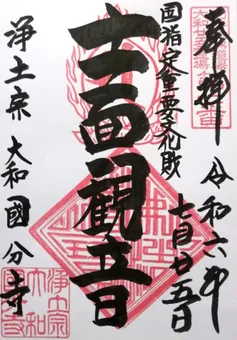 奉拝 令和六年
七月廿五日
国指定重要文化財
十一面観音
浄土宗 大和國分寺
浄土宗
大和